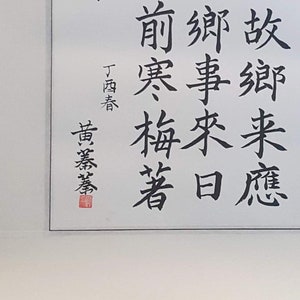 故鄉来應
鄉事來日
前寒梅著
丁酉春
黃蓁蓁